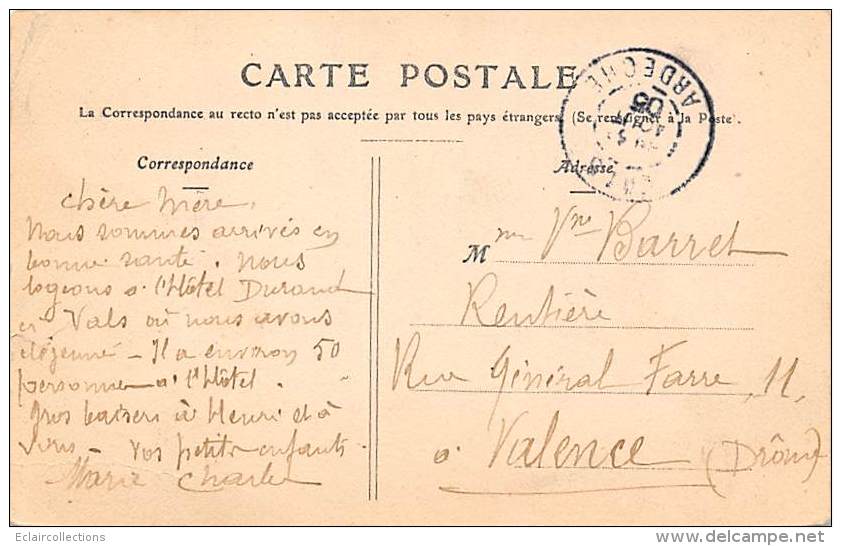 CARTE POSTALE
La Correspondance au recto n'est pas acceptée par tous les pays étrangers (Se renseigner à la Poste).
Correspondance
chère mère,
Nous sommes arrivés en
bonne santé. Nous
logeons à l'Hôtel Durand
à Vals où nous avons
déjeuné - Il a environ 50
personnes à l'Hôtel.
gros baisers à Henri et à
vous - vos petits enfants
Marie Charles
ARDECHE
05
Adresse
Mme Vve Barret
Rentière
Rue Général Farre, 11,
à Valence (Drôme)
Eclaircollections
delcampe.net